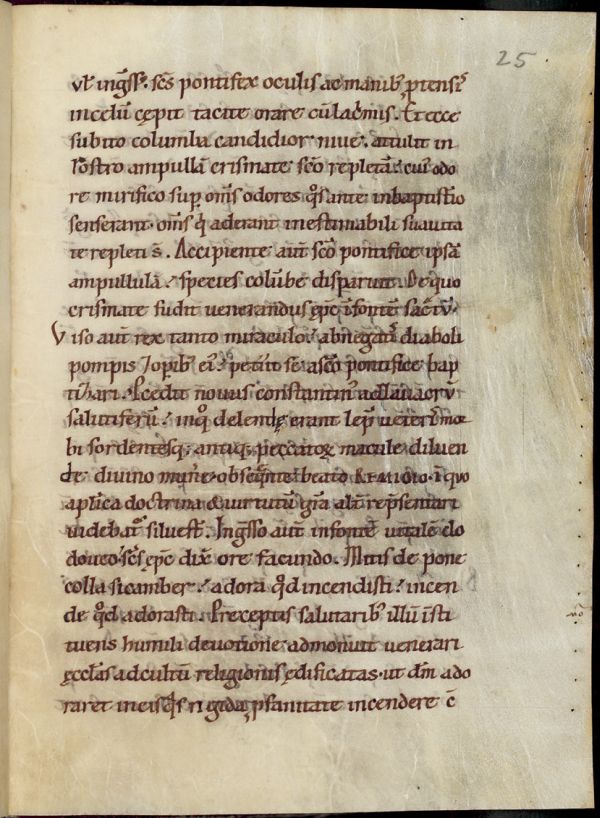 25
vł ings̄s̄. sc̄s pontifex oculis ac manib; ꝓtensis
in cęlū cępit tacite orare cū lacrimis. Et ecce
subito columba candidior niue. attulit in
rostro ampullā crismate sc̄o repletā. cui odo
re mirifico sup̄ om̄s odores qͦs ante in baptist̄io
senserant. om̄s qͥ aderant inestimabili suauita
te repleti s̄. Accipiente aut̄ sc̄o pontifice ipsā
ampullulā. species colūbe disparuit. De quo
crismate fudit venerandus ep̄c ī fontē sacͣtū.
Viso aut̄ rex tanto miraculo. abnegatis diaboli
pompis ⁊ opib; eiꝰ. petiit se a sc̄o pontifice bap
tizari. Ꝓcedit nouus constantinꝰ ad lauacrū
salutiferū. in qͦ delendę erant leprę veteris mor
bi sordentesq; antiqͣ peccatoꝝ macule diluen
de diuino mun̄e. obseqͣnte beato REMIGIO. ī quo
ap̄lica doctrina & uirtutū gr̄a alt̄ rep̄sentari
uidebatͬ siluest̄. Ingr̄sso aut̄ in fontē vitalē clo
doueo. sc̄s ep̄c dix̄ ore facundo. Mitis depone
colla sicamber. adora qͦd incendisti. incen
de qͦd adorasti. Preceptis salutarib; illū īsti
tuens humili deuotione admonuit venerari
ęccl̄as ad cultū religionis ędificatas. ut dm̄ ado
raret in eis qͦs rigida ꝓfanitate incendere c̄